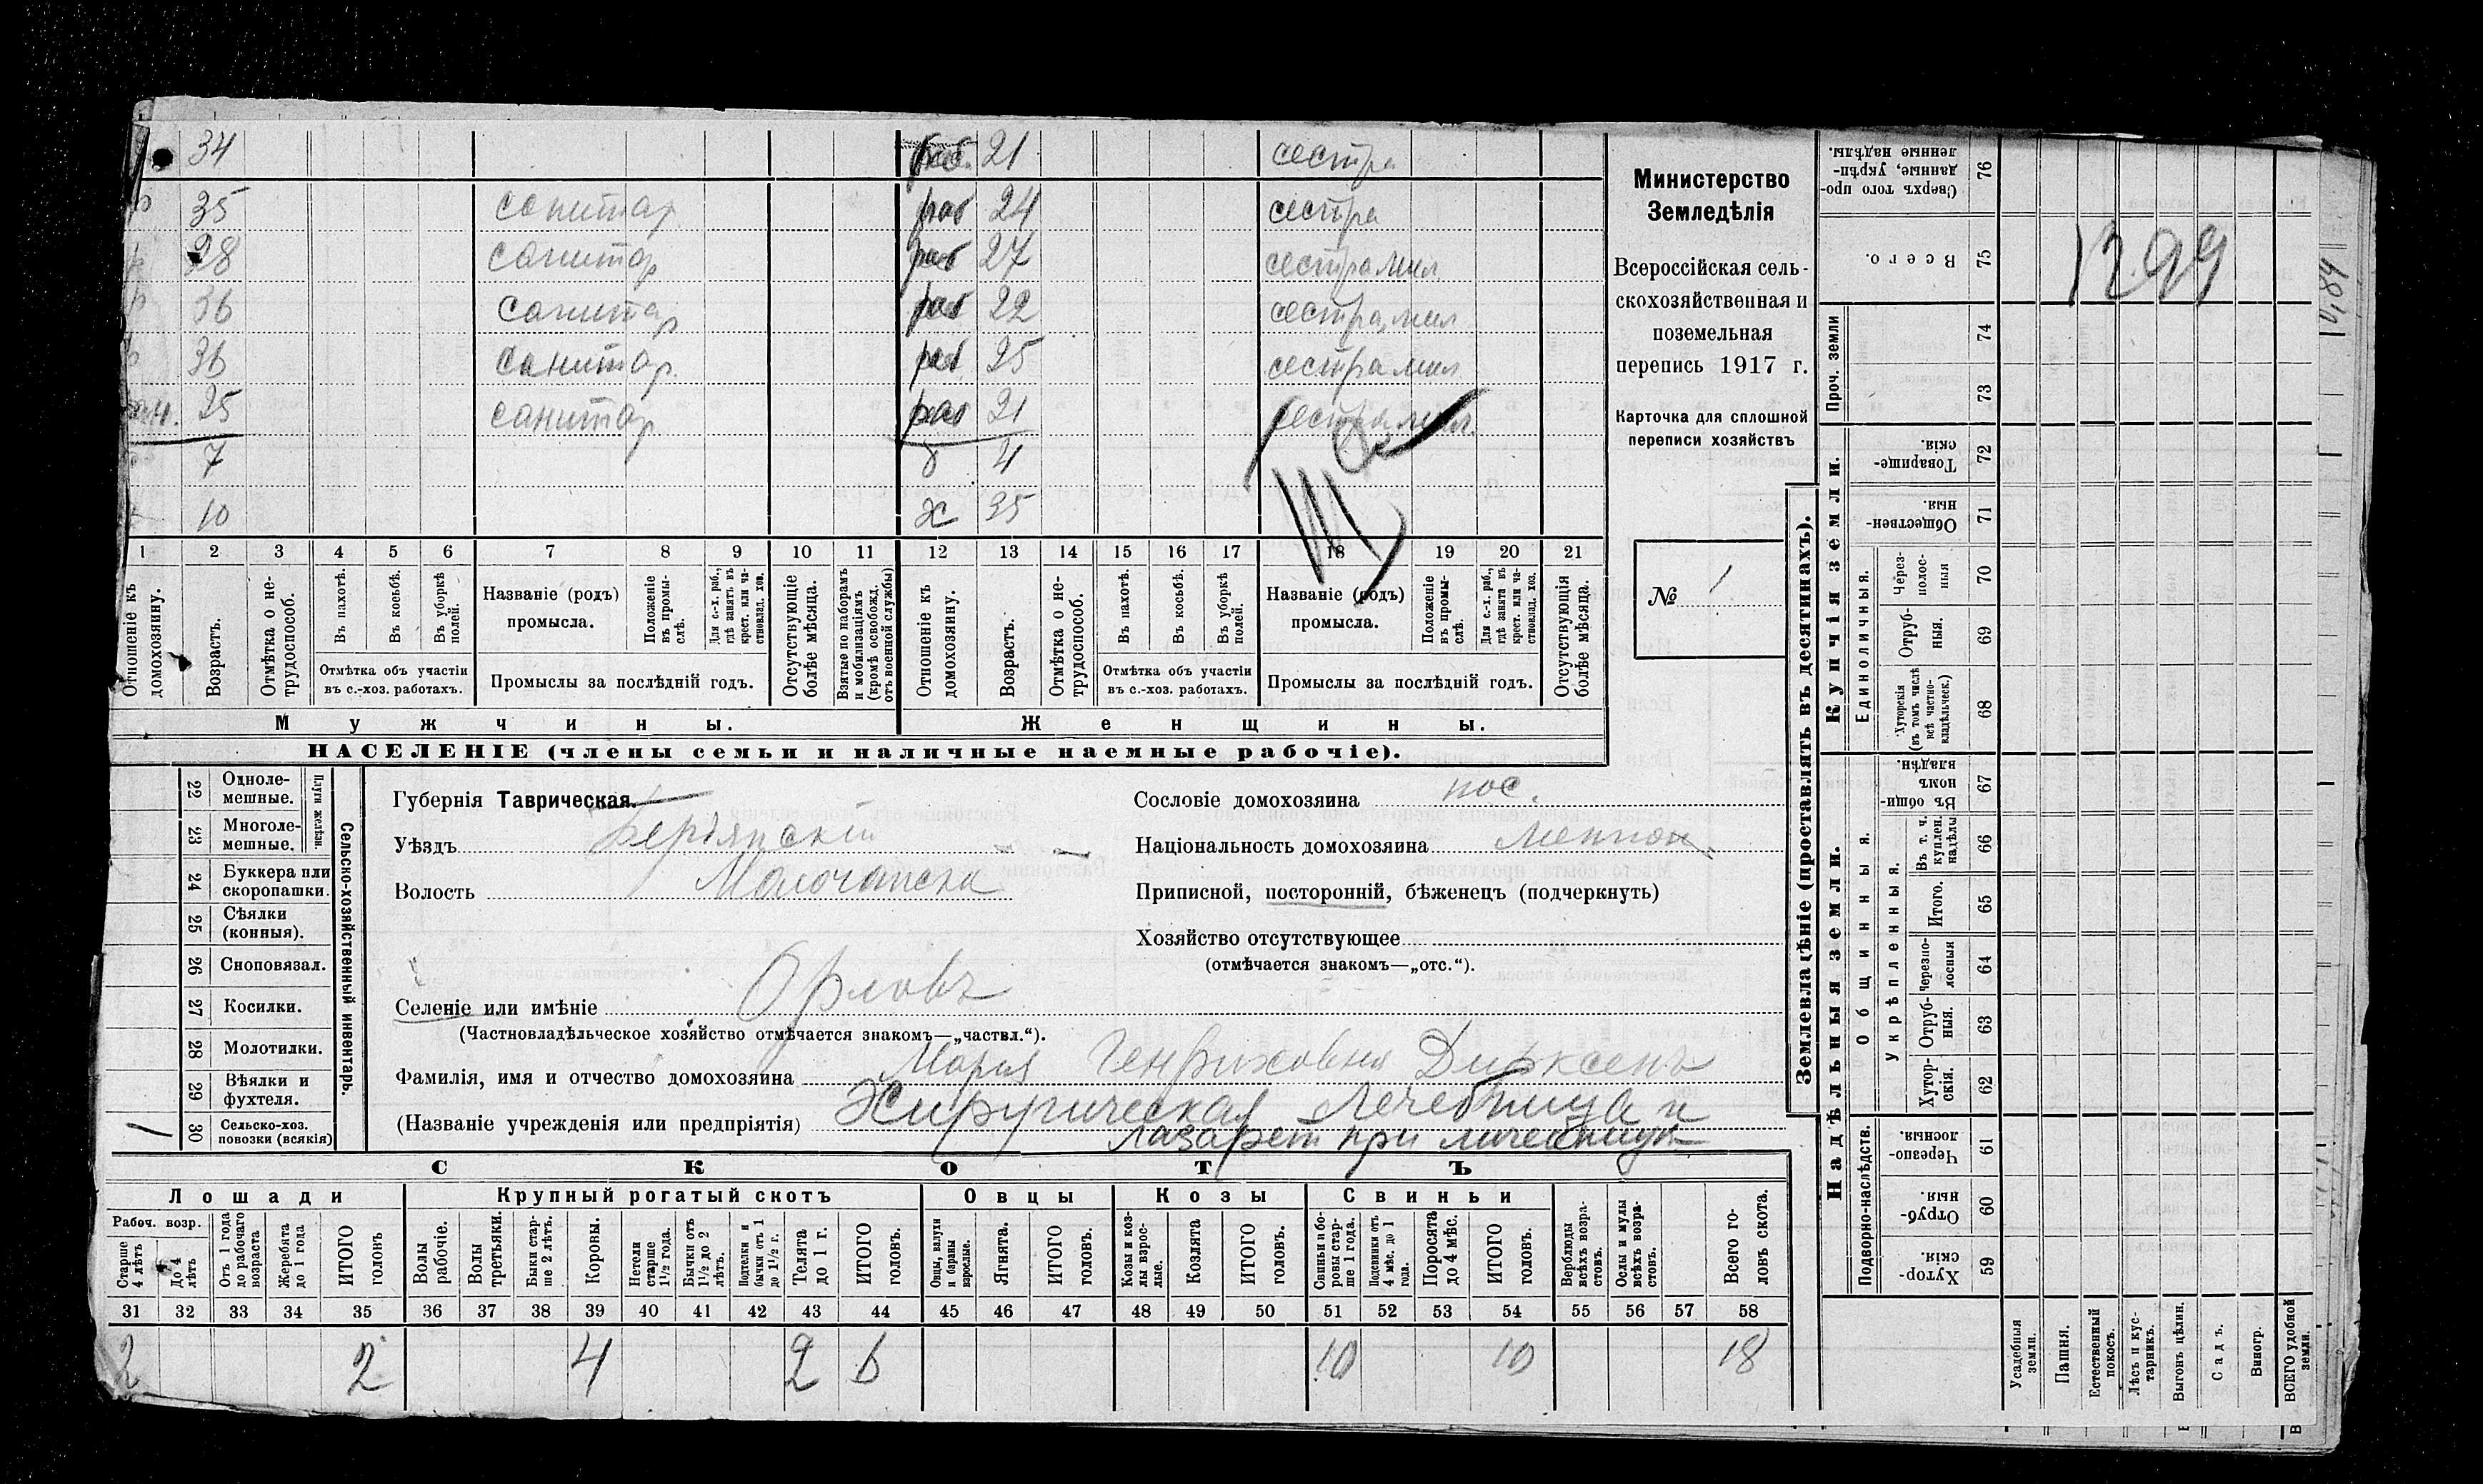 34 раб. 21 сестра
р 35 санитар раб 24 сестра
р 28 санитар раб 27 сестра мил
р 36 санитар раб 22 сестра мил
р 36 санитар раб 25 сестра мил
25 санитар раб 21 сестра мил.
7 4
10 ж 35
1 2 3 4 5 6 7 8 9 10 11 12 13 14 15 16 17 18 19 20 21
Отношеніе къ домохозяину.
Возрастъ.
Отмѣтка о нетрудоспособ.
Въ пахотѣ.
Въ косьбѣ.
Въ уборкѣ полей.
Отмѣтка объ участіи въ с.-хоз. работахъ.
Названіе (родъ) промысла.
Положеніе въ промыслѣ.
Для с.-х. раб., гдѣ занятъ въ крест. или частновлад. хоз.
Промыслы за послѣдній годъ.
Отсутствующіе болѣе мѣсяца.
Взятые по наборамъ и мобилизаціямъ (кромѣ освобожд. отъ военной службы)
Отношеніе къ домохозяину.
Возрастъ.
Отмѣтка о нетрудоспособ.
Въ пахотѣ.
Въ косьбѣ.
Въ уборкѣ полей.
Отмѣтка объ участіи въ с.-хоз. работахъ.
Названіе (родъ) промысла.
Положеніе въ промыслѣ.
Для с.-х. раб., гдѣ занята въ крест. или частновлад. хоз.
Промыслы за послѣдній годъ.
Отсутствующія болѣе мѣсяца.
Мужчины.
Женщины.
НАСЕЛЕНІЕ (члены семьи и наличные наемные рабочіе).
Министерство
Земледѣлія
Всероссійская сель-
скохозяйственная и
поземельная
перепись 1917 г.
Карточка для сплошной
переписи хозяйствъ
№ 1
22 Одноле-мешные.
23 Многоле-мешные.
Плуги желѣзн.
24 Буккера или скоропашки.
25 Сѣялки (конныя).
26 Сноповязал.
27 Косилки.
28 Молотилки.
29 Вѣялки и фухтеля.
30 Сельско-хоз. повозки (всякія) 1
Сельско-хозяйственный инвентарь.
Губернія Таврическая.
Уѣздъ Бердянскій
Волость Молочанска
Селеніе или имѣніе Орловъ
(Частновладѣльческое хозяйство отмѣчается знакомъ—„частвл.“).
Сословіе домохозяина пос.
Національность домохозяина меннон
Приписной, посторонній, бѣженецъ (подчеркнуть)
Хозяйство отсутствующее
(отмѣчается знакомъ—„отс.“).
Фамилія, имя и отчество домохозяина Марія Генриховна Дирксенъ
(Названіе учрежденія или предпріятія) Хирургическая Лечебница и
лазарет при лечебницѣ
СКОТЪ
Лошади
Крупный рогатый скотъ
Овцы
Козы
Свиньи
Рабоч. возр.
Старше 4 лѣтъ
До 4 лѣтъ
Отъ 1 года до рабочаго возраста
Жеребята до 1 года
ИТОГО головъ
Волы рабочіе.
Волы третьяки.
Быки старше 2 лѣтъ.
Коровы.
Нетели старше 1½ года.
Бычки отъ 1½ до 2 лѣтъ.
Подтелки и бычки отъ 1 до 1½ г.
Телята до 1 г.
ИТОГО головъ.
Овцы, валухи и бараны взрослые.
Ягнята.
ИТОГО головъ.
Козы и козлы взрослые.
Козлята
ИТОГО головъ.
Свиньи и боровы старше 1 года.
Подсвинки отъ 4 мѣс. до 1 года.
Поросята до 4 мѣс.
ИТОГО головъ.
Верблюды всѣхъ возрастовъ.
Ослы и мулы всѣхъ возрастовъ.
Всего головъ скота.
31 32 33 34 35 36 37 38 39 40 41 42 43 44 45 46 47 48 49 50 51 52 53 54 55 56 57 58
2 2 4 2 6 10 10 18
Землевладѣніе (проставлять въ десятинахъ).
Купчія земли.
Надѣльныя земли.
Сверхъ того проданные, укрѣпленные надѣлы. 76
Всего. 75
1299
10,84
Проч. земли
74
73
Товарищескія. 72
Общественныя. 71
Единоличныя.
Черезполосныя 70
Отрубныя. 69
Хуторскія (въ томъ числѣ всѣ частновладѣльческ.) 68
Въ общинномъ владѣн. 67
Общинныя.
Укрѣпленныя.
Въ т. ч. куплен. надѣлы 66
Итого. 65
Черезполосныя 64
Отрубныя. 63
Хуторскія. 62
Подворно-наслѣдств.
Черезполосныя. 61
Отрубныя. 60
Хуторскія. 59
Усадебныя земли.
Пашня.
Естественный покосъ.
Лѣсъ и кустарникъ.
Выгонъ цѣлин.
Садъ.
Виногр.
ВСЕГО удобной земли.